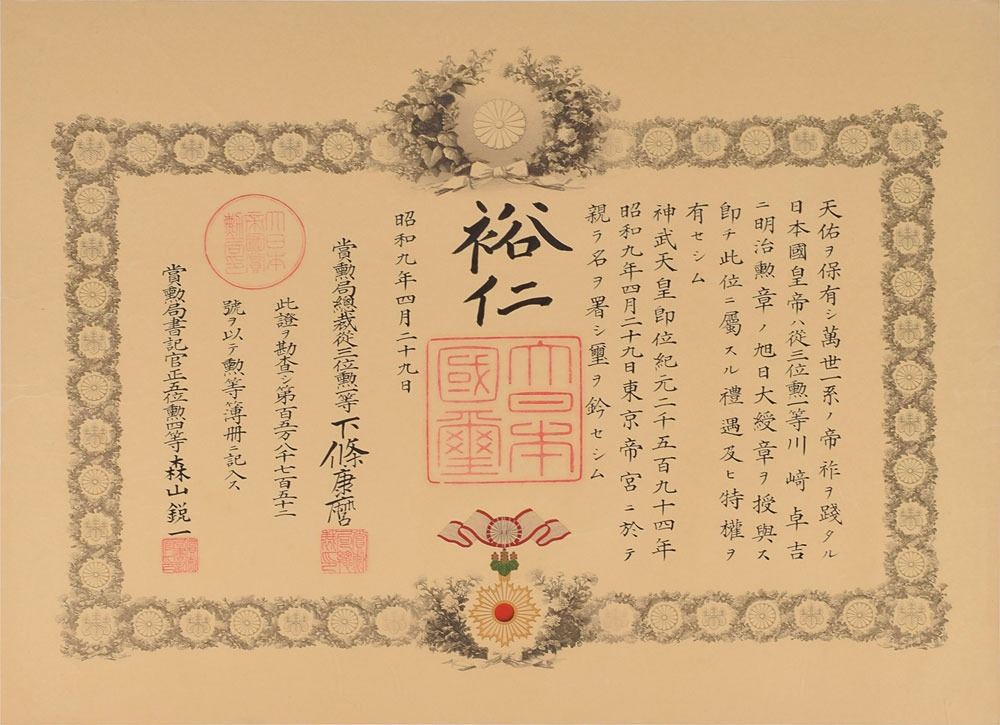 天佑ヲ保有シ萬世一系ノ帝祚ヲ踐タル
日本國皇帝ハ從三位勲一等川﨑卓吉
ニ明治勲章ノ旭日大綬章ヲ授與ス
即チ此位ニ屬スル禮遇及ヒ特權ヲ
有セシム
神武天皇即位紀元二千五百九十四年
昭和九年四月二十九日東京帝宮ニ於テ
親ラ名ヲ署シ璽ヲ鈐セシム
裕仁
大日本國璽
昭和九年四月二十九日
賞勲局總裁從三位勲一等下條康麿
此證ヲ勘査シ第百五万八千七百五十二
號ヲ以テ勲等簿册ニ記入ス
大日本帝國賞勲局印
賞勲局書記官正五位勲四等森山鋭一